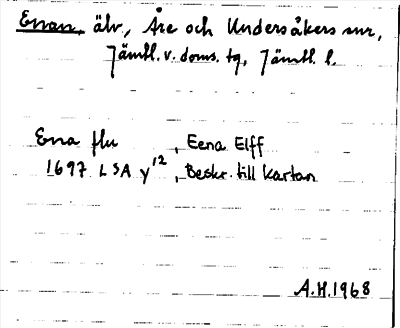 Enan, älv, Åre och Undersåkers snr,
Jämtl. v. doms. tg, Jämtl. l.
Ena flu , Eena Elff
1697 LSA y 12 , Beskr. till kartan
A.H. 1968